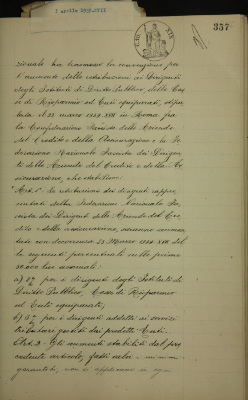 1 aprile 1939-XVII
357
L. 10
zionale ha trasmesso la convenzione per
l'aumento delle retribuzioni ai Dirigenti
degli Istituti di Diritto Pubblico, delle Cas
se di Risparmio ed Enti equiparati, stipu
lata il 22 marzo 1939 XVII in Roma fra
la Confederazione Fascista delle Aziende
del Credito e della Assicurazione e la Fe
derazione Nazionale Fascista dei Dirigen
ti delle Aziende del Credito e della As
sicurazione, che stabilisce:
"Art. 1° Le retribuzioni dei dirigenti rappre
sentati dalla Federazione Nazionale Fa
scista dei Dirigenti delle Aziende del Cre
dito e della assicurazione, saranno aumen
tate con decorrenza 21 Marzo 1939 XVII del
le seguenti percentuali sulle prime
30.000 lire annuali:
a) per i dirigenti degli Istituti di
Diritto Pubblico, Casse di Risparmio
ed Enti equiparati,
b) per i dirigenti addetti ai servizi
esattoriali gestiti dai predetti Enti.
Art. 2 - Gli aumenti stabiliti dal pre
cedente articolo, fatti salvi i minimi
garantiti, non si applicano in ogni